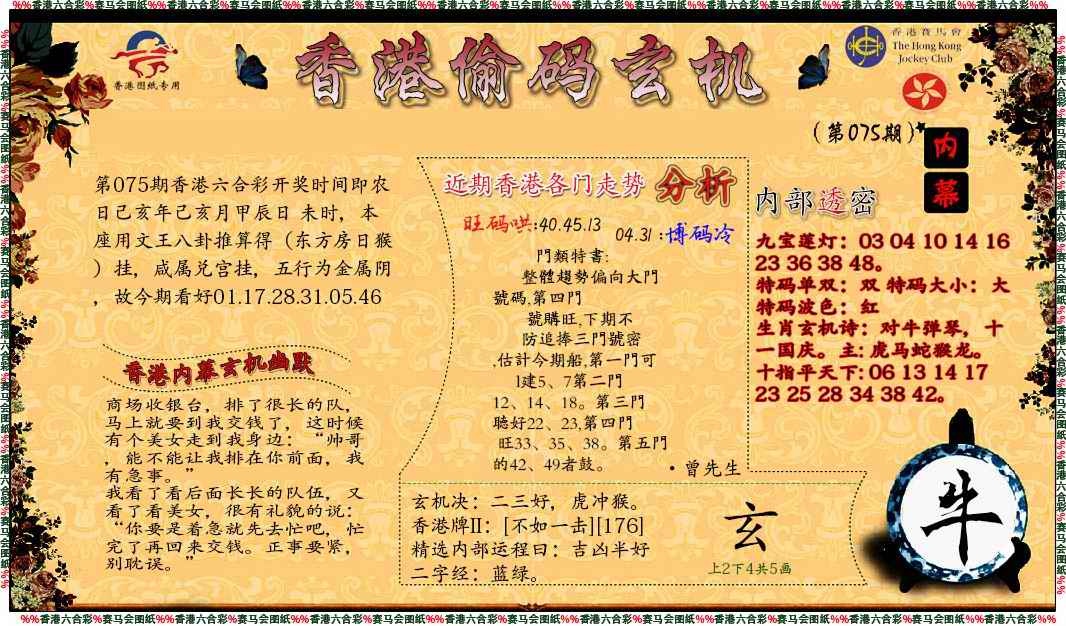 %%香港六合彩%赛马会图纸%%香港六合彩%赛马会图纸%%香港六合彩%赛马会图纸%%香港六合彩%赛马会图纸%%香港六合彩%赛马会图纸%%香港六合彩%赛马会图纸%%
香港图纸专用
香港偷码玄机
香港賽馬會
The Hong Kong
Jockey Club
(第075期)
内
幕
第075期香港六合彩开奖时间即农
日己亥年己亥月甲辰日 未时，本
座用文王八卦推算得（东方房日猴
）挂，咸属兑宫挂，五行为金属阴
，故今期看好01.17.28.31.05.46
香港内幕玄机幽默
商场收银台，排了很长的队，
马上就要到我交钱了，这时候
有个美女走到我身边：“帅哥
，能不能让我排在你前面，我
有急事。”
我看了看后面长长的队伍，又
看了看美女，很有礼貌的说：
“你要是着急就先去忙吧，忙
完了再回来交钱。正事要紧，
别耽误。”
近期香港各门走势 分析
旺码哄:40.45.13
04.31 :博码冷
門類特書:
整體趨勢偏向大門
號碼,第四門
號購旺,下期不
防追捧三門號密
,估計今期船,第一門可
1建5、7第二門
12、14、18。第三門
聽好22、23,第四門
旺33、35、38。第五門
的42、49者鼓。
·曾先生
内部透密
九宝莲灯：03 04 10 14 16
23 36 38 48。
特码单双：双 特码大小：大
特码波色：红
生肖玄机诗：对牛弹琴，十
一国庆。主: 虎马蛇猴龙。
十指平天下: 06 13 14 17
23 25 28 34 38 42。
玄机决：二三好，虎冲猴。
香港牌II：[不如一击][176]
精选内部运程曰：吉凶半好
二字经：蓝绿。
玄
上2下4共5画
牛
%%香港六合彩%赛马会图纸%%香港六合彩%赛马会图纸%%香港六合彩%赛马会图纸%%香港六合彩%赛马会图纸%%香港六合彩%赛马会图纸%%香港六合彩%赛马会图纸%%